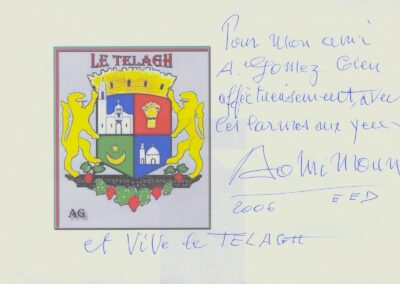 LE TELAGH
AG
Pour mon ami
A. Gomez bien
affectueusement, avec
les larmes aux yeux
2006 EED
et Vive le TELAGH